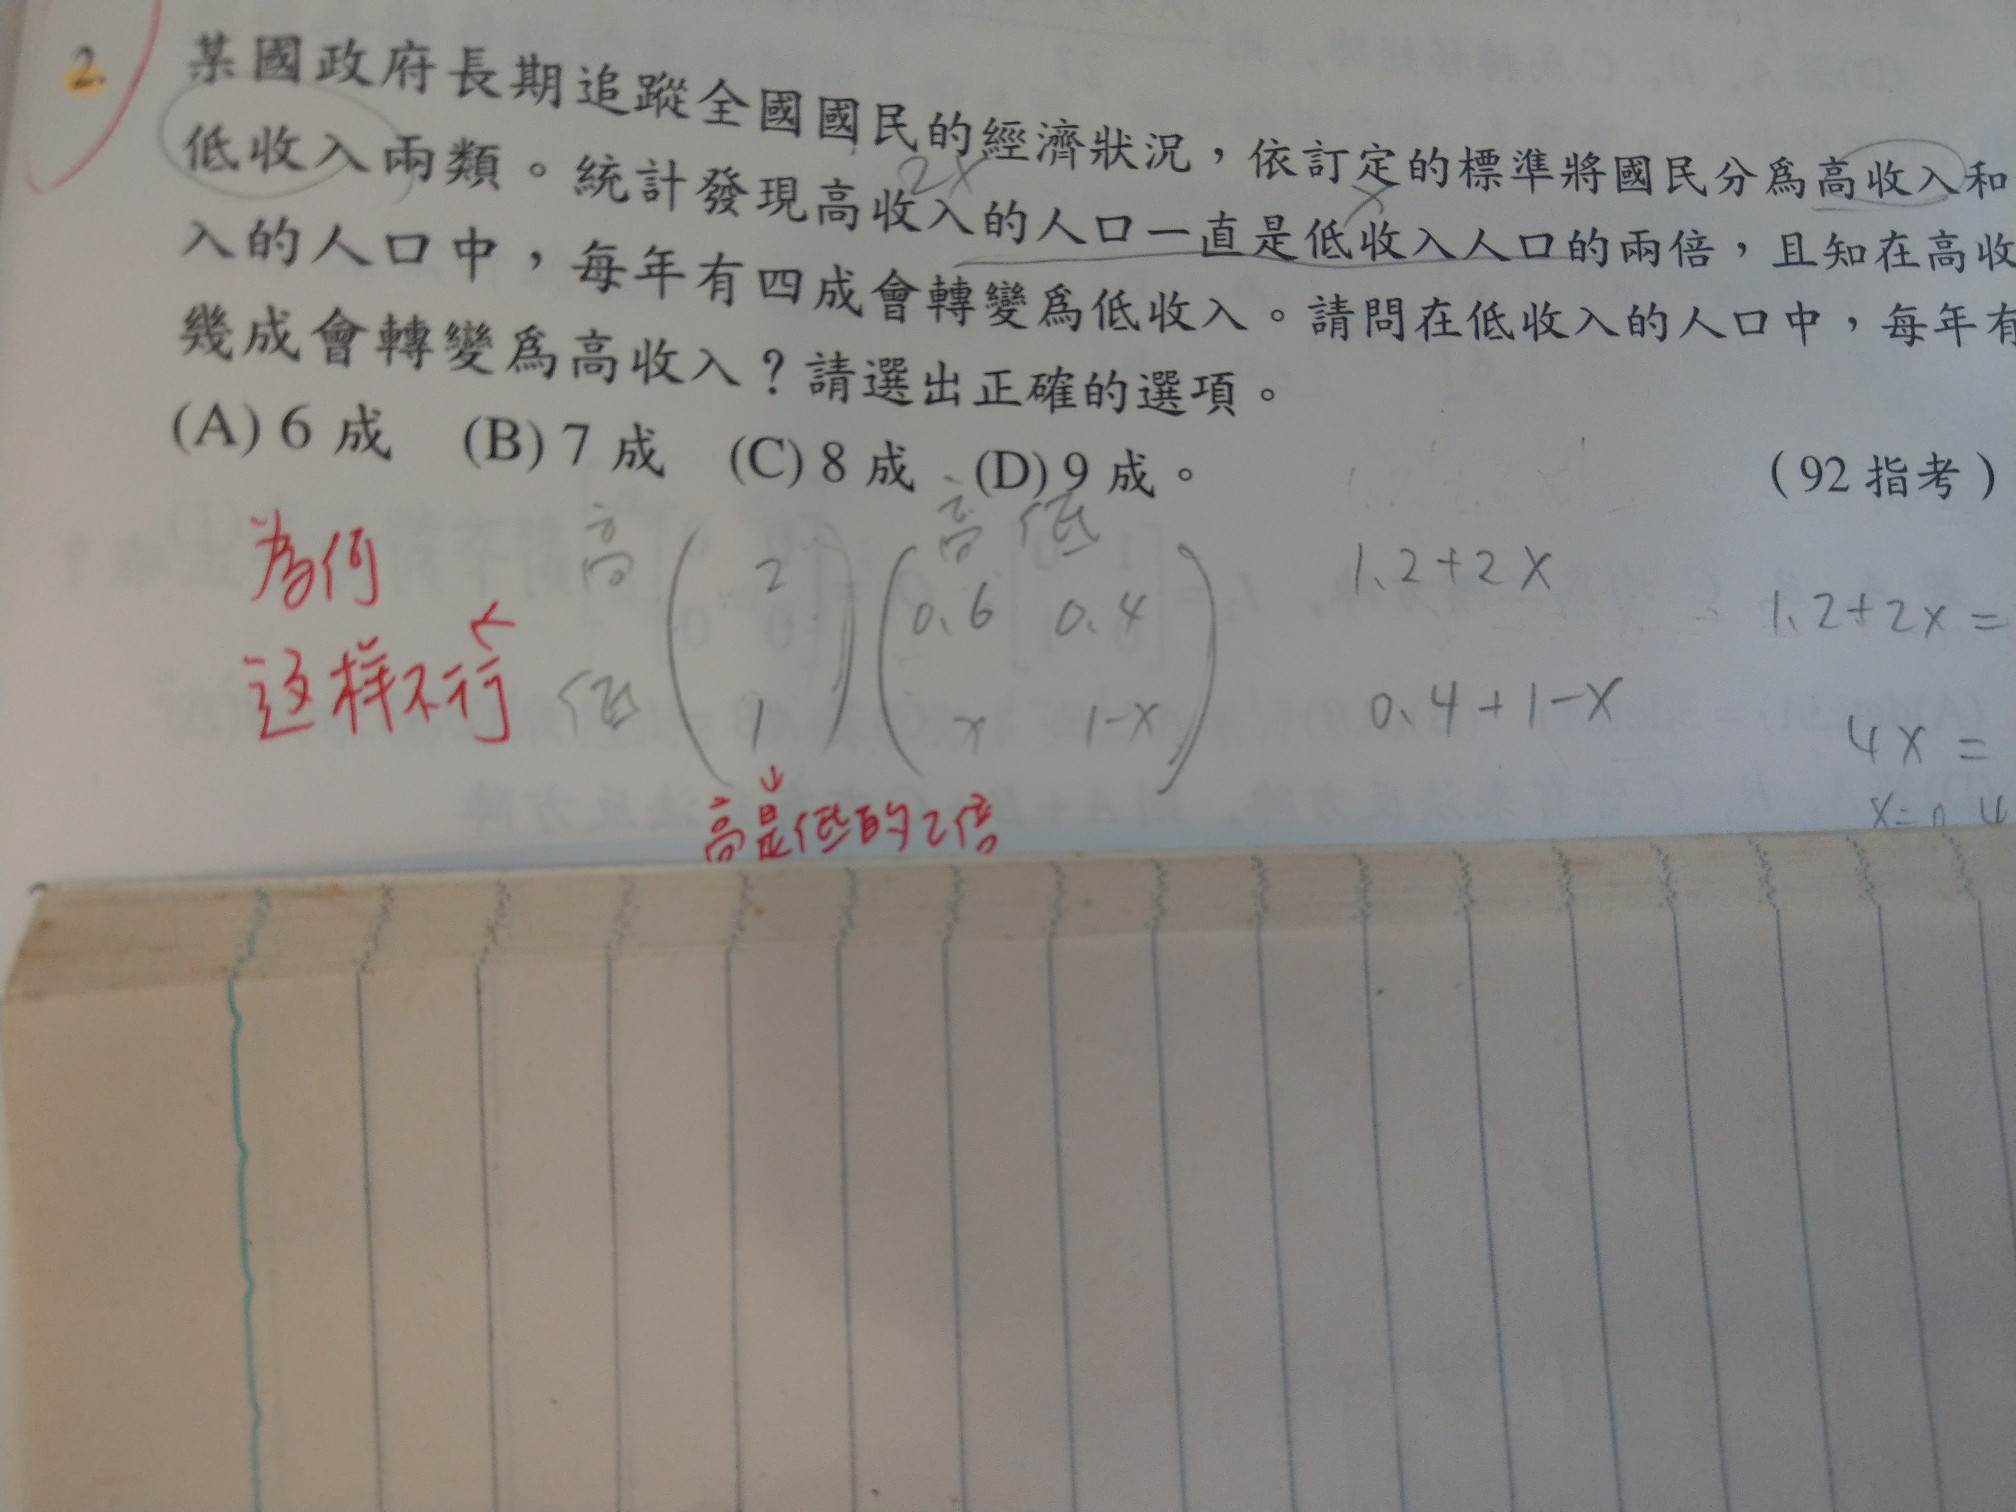 2. 某國政府長期追蹤全國國民的經濟狀況，依訂定的標準將國民分為高收入和
低收入兩類。統計發現高收入的人口一直是低收入人口的兩倍，且知在高收
入的人口中，每年有四成會轉變為低收入。請問在低收入的人口中，每年有
幾成會轉變為高收入？請選出正確的選項。
(A) 6 成 (B) 7 成 (C) 8 成 (D) 9 成。
（92 指考）
2x
x
為何
這样不行
高 低
高 2 0.6 0.4
低 1 x 1-x
高是低的2倍
1.2+2x
0.4+1-x
1.2+2x=
4x=